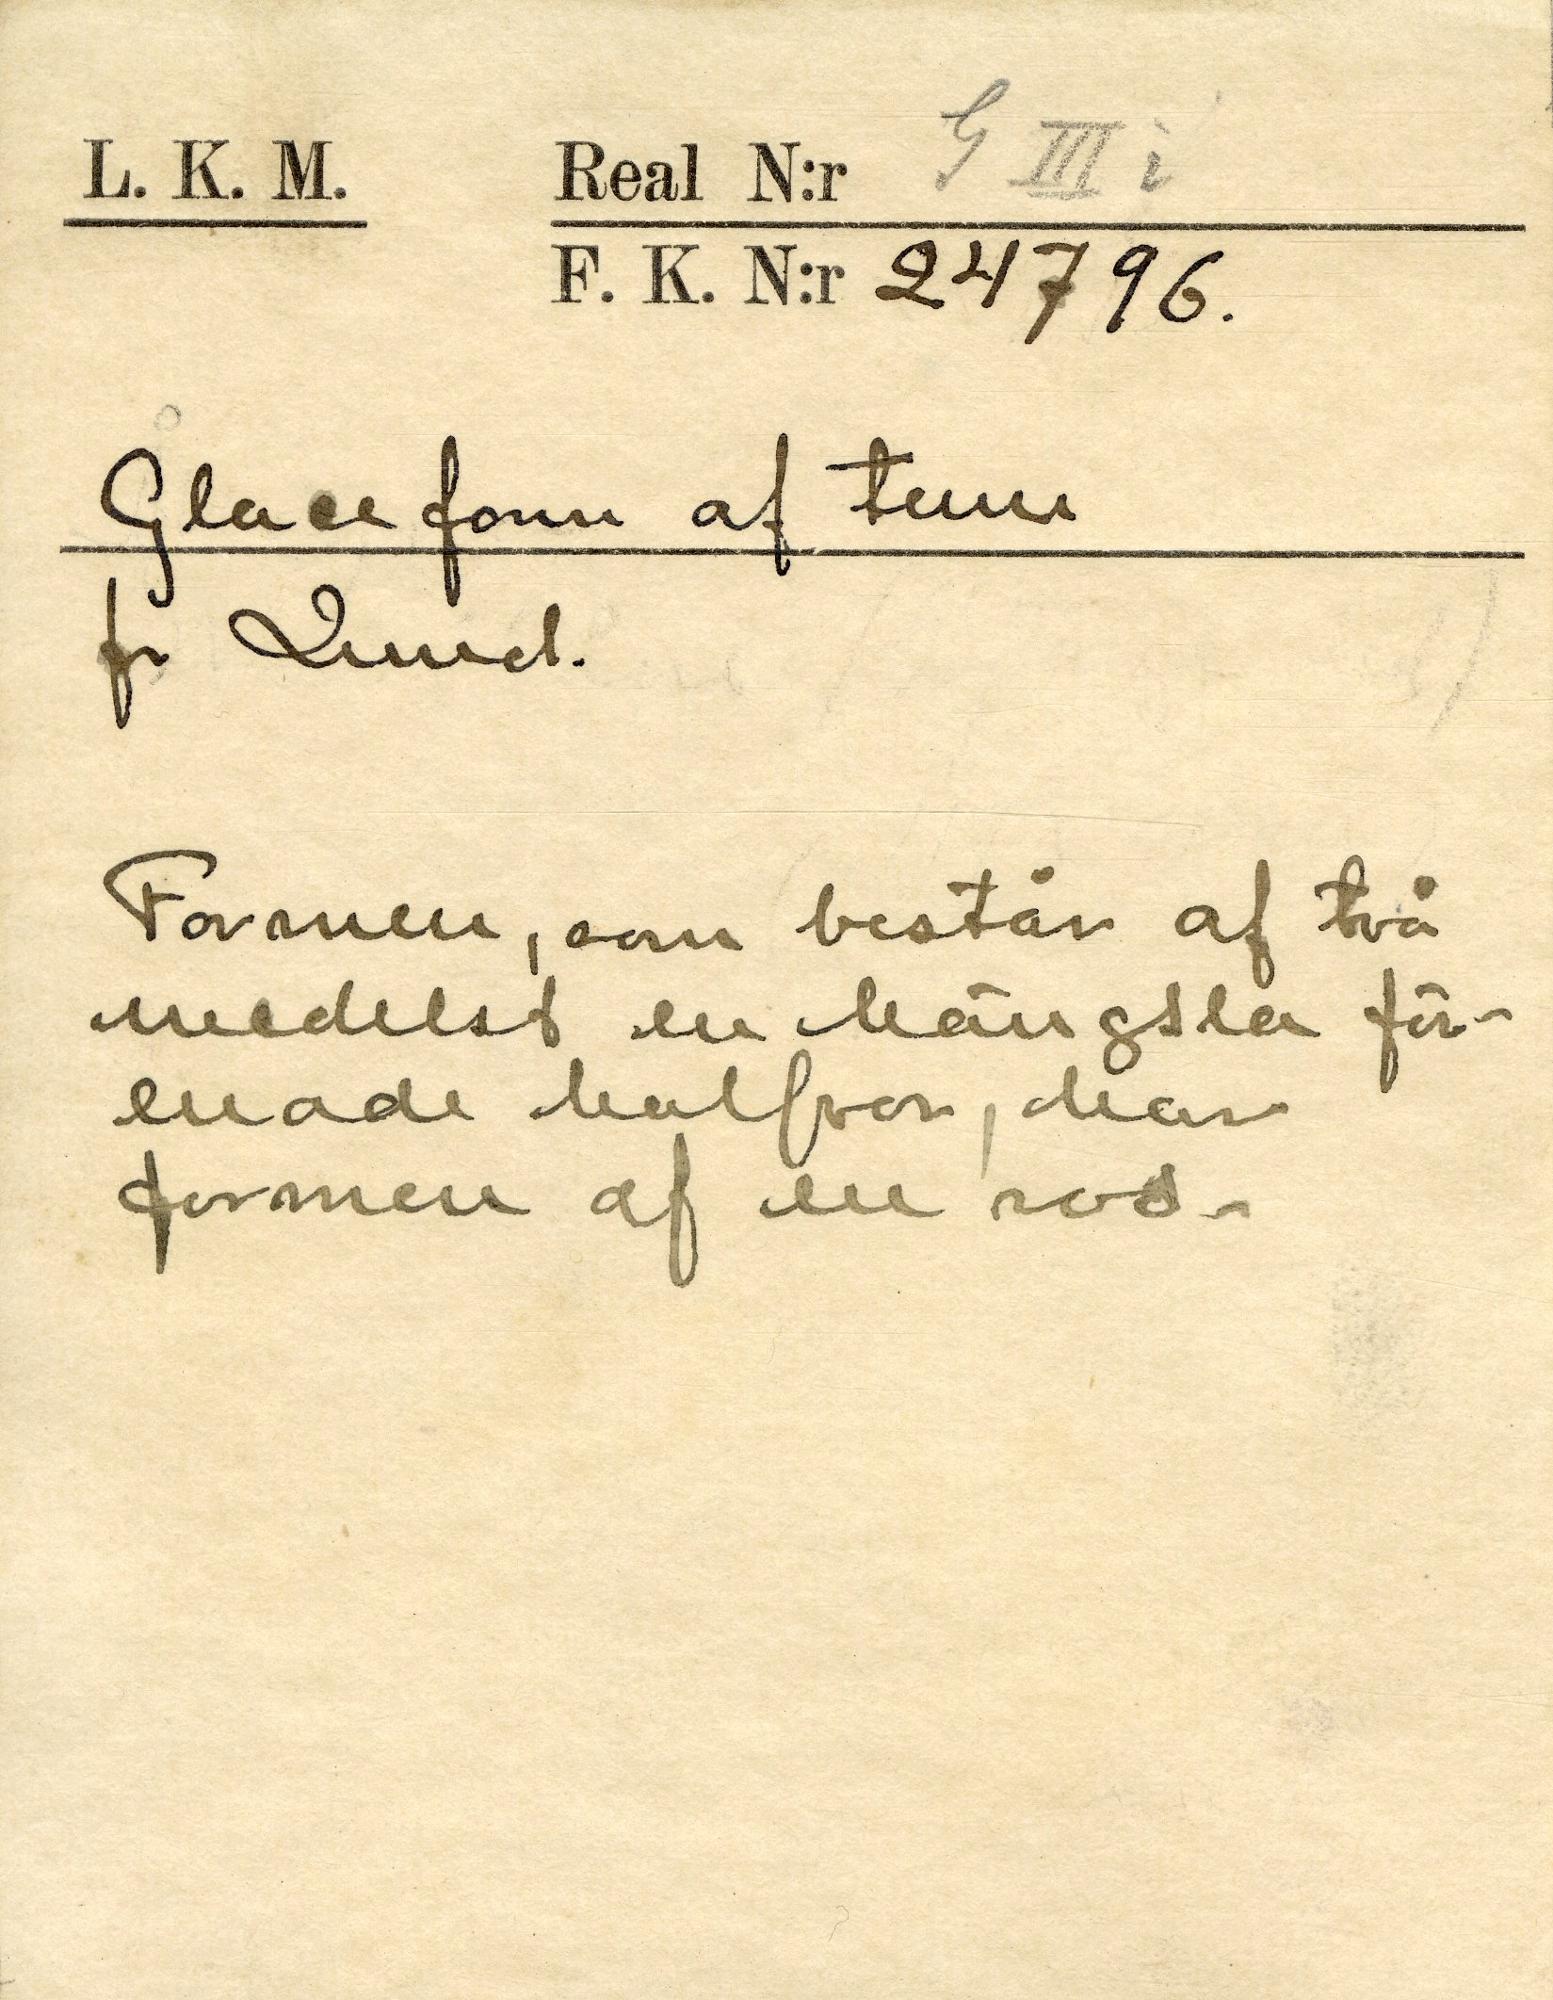 L. K. M. Real N:r G III i
F. K. N:r 24796.
Glaceform af tenn
fr Lund.
Formen, som består af två
medelst en hängsla för-
enade halfvor, har
formen af en ros.